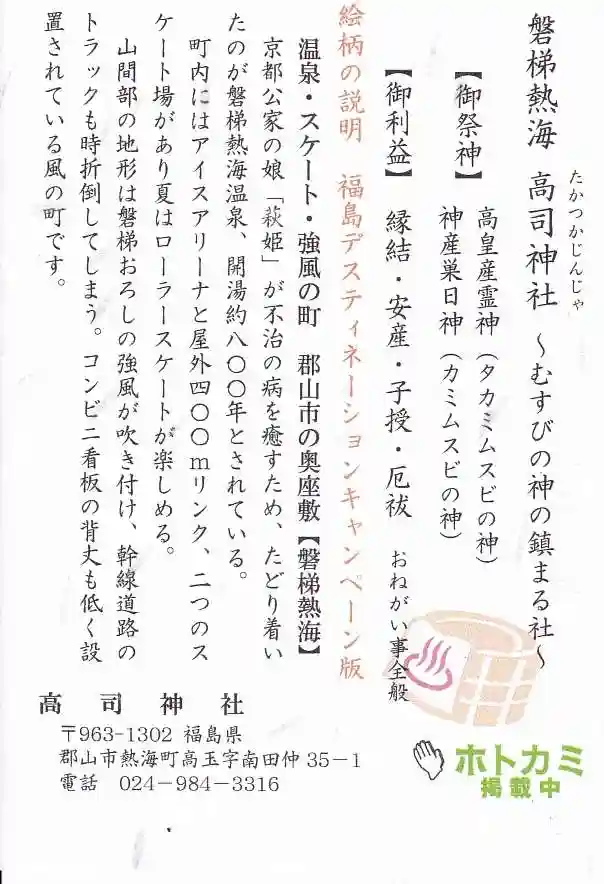 たかつかじんじゃ
磐梯熱海 高司神社 ～むすびの神の鎮まる社～
【御祭神】 高皇産霊神（タカミムスビの神）
神産巣日神（カミムスビの神）
【御利益】 縁結・安産・子授・厄祓 おねがい事全般
絵柄の説明 福島デスティネーションキャンペーン版
温泉・スケート・強風の町 郡山市の奥座敷【磐梯熱海】
京都公家の娘「萩姫」が不治の病を癒すため、たどり着い
たのが磐梯熱海温泉、開湯約八〇〇年とされている。
町内にはアイスアリーナと屋外四〇〇ｍリンク、二つのス
ケート場があり夏はローラースケートが楽しめる。
山間部の地形は磐梯おろしの強風が吹き付け、幹線道路の
トラックも時折倒してしまう。コンビニ看板の背丈も低く設
置されている風の町です。
高司神社
〒963-1302 福島県
郡山市熱海町高玉字南田仲35－1
電話 024－984－3316
ホトカミ
掲載中